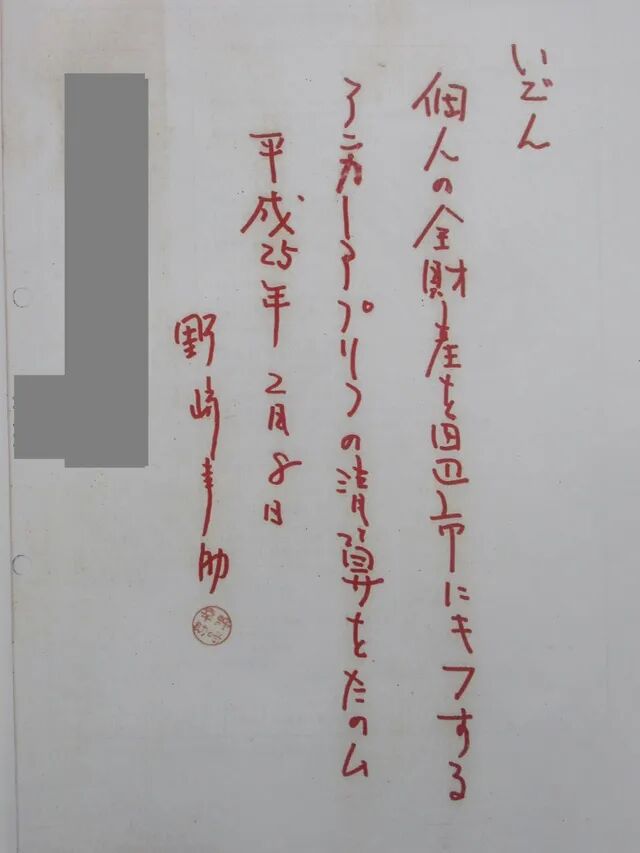 いごん
個人の全財産を田辺市にキフする
アンカーアプリコの清算をたのム
平成25年2月8日
野崎幸助